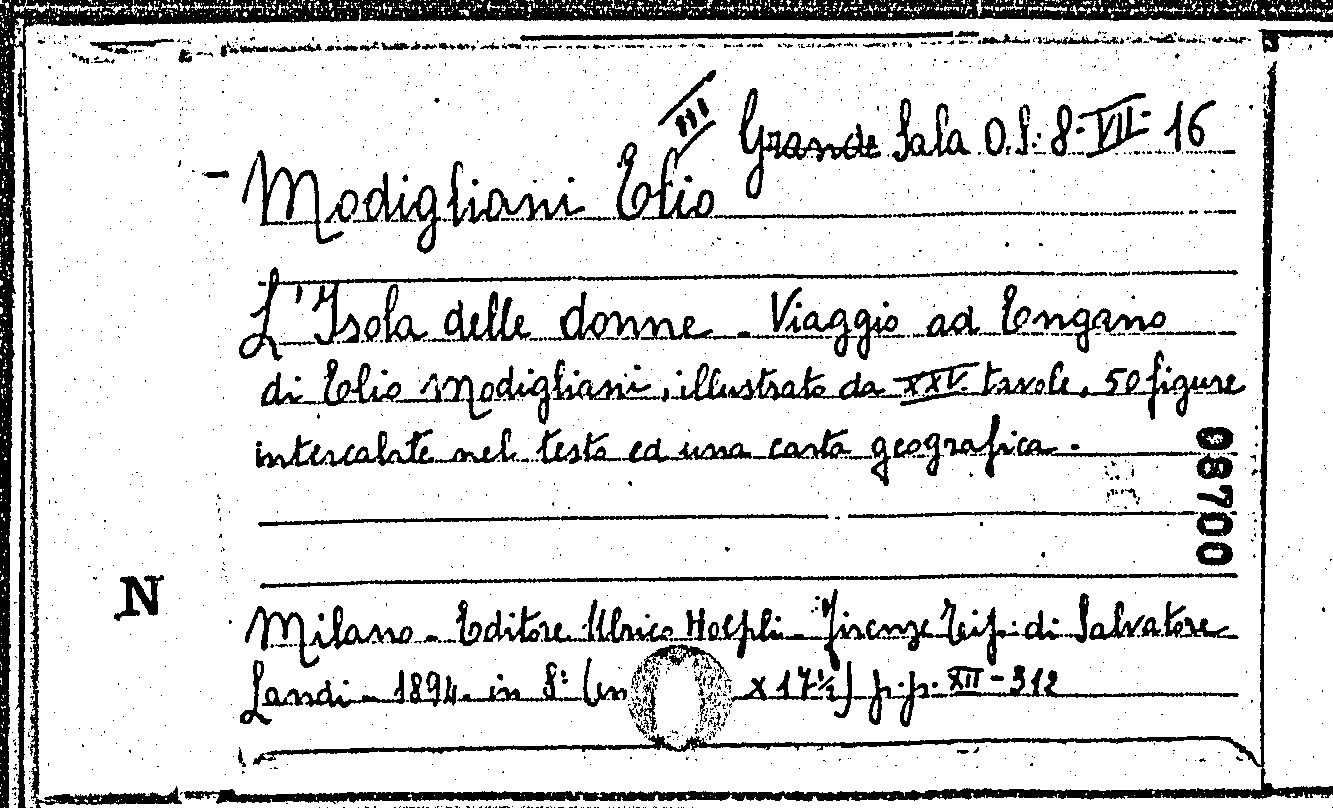 III
Grande Sala O.S. 8-VII-16
- Modigliani Elio
L'Isola delle donne - Viaggio ad Engano
di Elio Modigliani, illustrato da XXV. tavole, 50 figure
intercalate nel testo ed una carta geografica.
08700
N
Milano - Editore Ulrico Hoepli - Firenze Tip. di Salvatore
Landi - 1894 - in 8º (cm x 17½) p.p. XII-312